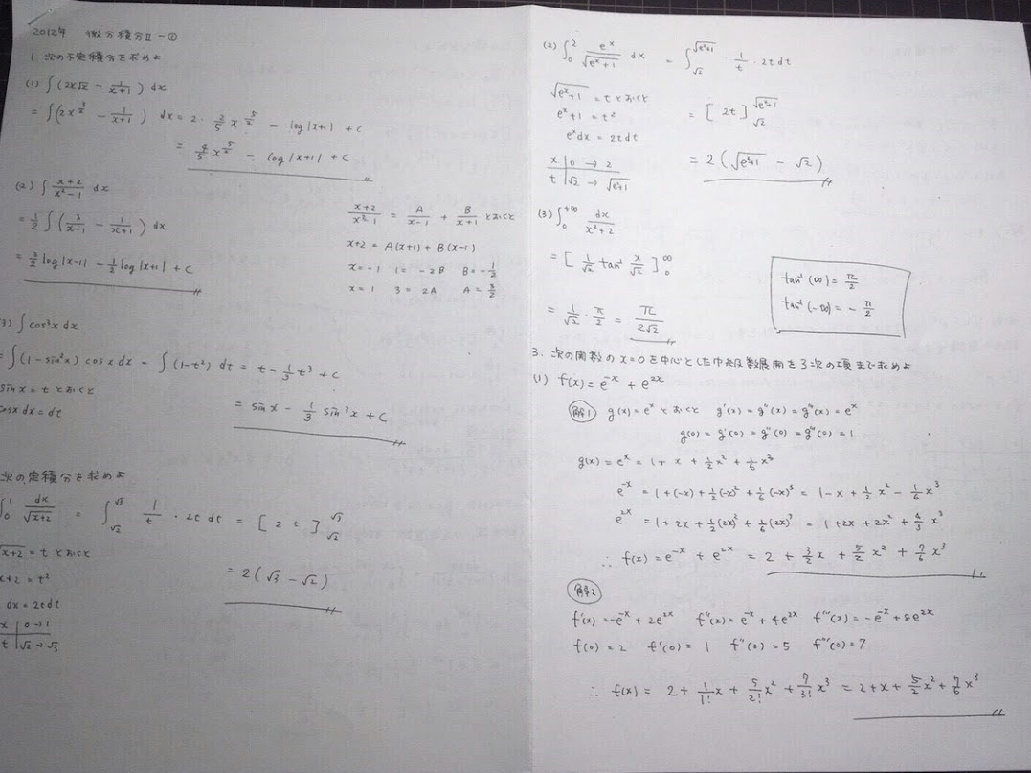 2012年 微分積分Ⅱ-①
1. 次の不定積分を求めよ
(1) ∫(2x√x - 1/(x+1)) dx
= ∫(2x^{3/2} - 1/(x+1)) dx = 2・2/5 x^{5/2} - log|x+1| + C
= 4/5 x^{5/2} - log|x+1| + C
(2) ∫ (x+2)/(x²-1) dx
= 1/2 ∫(3/(x-1) - 1/(x+1)) dx
= 3/2 log|x-1| - 1/2 log|x+1| + C
(x+2)/(x²-1) = A/(x-1) + B/(x+1) とおくと
x+2 = A(x+1) + B(x-1)
x=-1 1=-2B B=-1/2
x=1 3=2A A=3/2
(3) ∫cos³x dx
= ∫(1-sin²x) cosx dx = ∫(1-t²) dt = t - 1/3 t³ + C
sinx = t とおくと
cosx dx = dt
= sinx - 1/3 sin³x + C
次の定積分を求めよ
∫₀¹ dx/√(x+2) = ∫_{√2}^{√3} 1/t ・2t dt = [2t]_{√2}^{√3}
√(x+2) = t とおくと
x+2 = t²
dx = 2tdt
x | 0→1
t | √2→√3
= 2(√3 - √2)
(2) ∫₀² e^x/√(e^x+1) dx = ∫_{√2}^{√(e²+1)} 1/t ・2tdt
√(e^x+1) = t とおくと
e^x+1 = t²
e^x dx = 2tdt
x | 0 → 2
t | √2 → √(e²+1)
= [2t]_{√2}^{√(e²+1)}
= 2(√(e²+1) - √2)
(3) ∫₀^{+∞} dx/(x²+2)
= [1/√2 tan⁻¹ x/√2]₀^∞
= 1/√2 ・ π/2 = π/(2√2)
tan⁻¹(∞) = π/2
tan⁻¹(-∞) = -π/2
3. 次の関数の x=0 を中心としたベキ級数展開を3次の項まで求めよ
(1) f(x) = e^{-x} + e^{2x}
解1 g(x) = e^x とおくと g'(x) = g''(x) = g'''(x) = e^x
g(0) = g'(0) = g''(0) = g'''(0) = 1
g(x) = e^x = 1 + x + 1/2 x² + 1/6 x³
e^{-x} = 1 + (-x) + 1/2(-x)² + 1/6(-x)³ = 1 - x + 1/2 x² - 1/6 x³
e^{2x} = 1 + 2x + 1/2(2x)² + 1/6(2x)³ = 1 + 2x + 2x² + 4/3 x³
∴ f(x) = e^{-x} + e^{2x} = 2 + 3/2 x + 5/2 x² + 7/6 x³
解2
f'(x) = -e^{-x} + 2e^{2x} f''(x) = e^{-x} + 4e^{2x} f'''(x) = -e^{-x} + 8e^{2x}
f(0) = 2 f'(0) = 1 f''(0) = 5 f'''(0) = 7
∴ f(x) = 2 + 1/1! x + 5/2! x² + 7/3! x³ = 2 + x + 5/2 x² + 7/6 x³